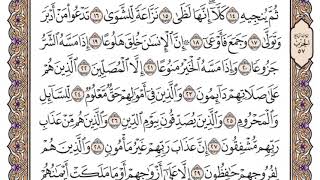 ثُمَّ يُنجِيهِ ۝١٤ كَلَّآ إِنَّهَا لَظَىٰ ۝١٥ نَزَّاعَةً لِّلشَّوَىٰ ۝١٦ تَدْعُوا۟ مَنْ أَدْبَرَ
وَتَوَلَّىٰ ۝١٧ وَجَمَعَ فَأَوْعَىٰٓ ۝١٨ إِنَّ ٱلْإِنسَٰنَ خُلِقَ هَلُوعًا ۝١٩ إِذَا مَسَّهُ ٱلشَّرُّ
جَزُوعًا ۝٢٠ وَإِذَا مَسَّهُ ٱلْخَيْرُ مَنُوعًا ۝٢١ إِلَّا ٱلْمُصَلِّينَ ۝٢٢ ٱلَّذِينَ هُمْ
عَلَىٰ صَلَاتِهِمْ دَآئِمُونَ ۝٢٣ وَٱلَّذِينَ فِىٓ أَمْوَٰلِهِمْ حَقٌّ مَّعْلُومٌ ۝٢٤ لِّلسَّآئِلِ
وَٱلْمَحْرُومِ ۝٢٥ وَٱلَّذِينَ يُصَدِّقُونَ بِيَوْمِ ٱلدِّينِ ۝٢٦ وَٱلَّذِينَ هُم مِّنْ عَذَابِ
رَبِّهِم مُّشْفِقُونَ ۝٢٧ إِنَّ عَذَابَ رَبِّهِمْ غَيْرُ مَأْمُونٍ ۝٢٨ وَٱلَّذِينَ هُمْ
لِفُرُوجِهِمْ حَٰفِظُونَ ۝٢٩ إِلَّا عَلَىٰٓ أَزْوَٰجِهِمْ أَوْ مَا مَلَكَتْ أَيْمَٰنُهُمْ
الحزب
٥٧